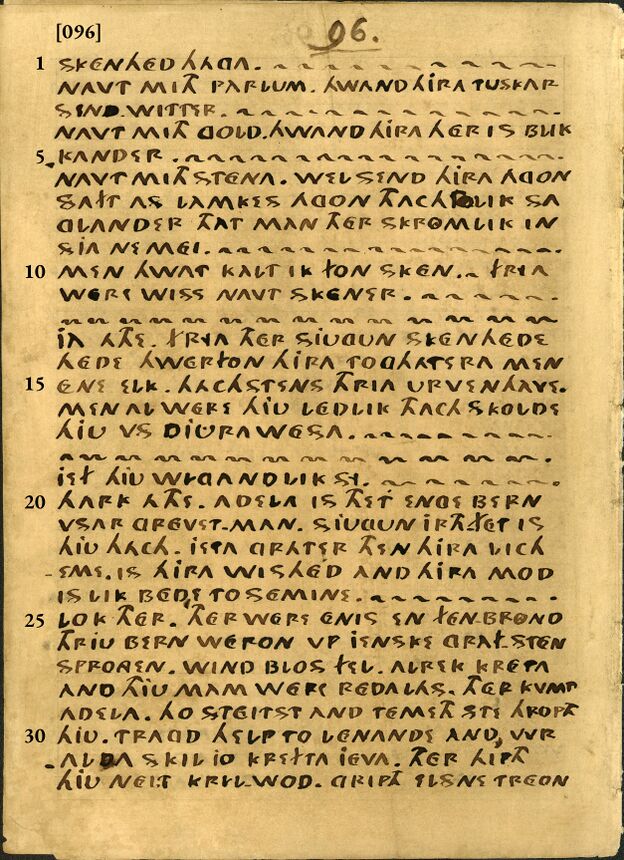 [096]
96.
1 SKENHED HAGA.
NAVT MITH PARLUM. HWAND HIRA TUSKAR
SEND. WITTER.
NAVT MITH GOLD. HWAND HIRA HER IS BLIK
5 KANDER.
NAVT MITH STENA. WEL SEND HIRA AGON
SAFT AS LAMKES AGON THACH TO LIK SA
GLANDER THAT MAN THER SKROMLIK IN
SIA NE MEI.
10 MEN HWAT KALT IK FON SKEN. FRIA
WERE WISS NAVT SKENER.
IA ATHE. FRIA THER SIUGUN SKENHEDE
HEDE HWERFON HIRA TOGHATERA MEN
15 ENE ELK. HACHSTENS THRIA URVEN HAVE.
MEN AL WERE HIU LEDLIK THACH SKOLDE
HIU VS DIURA WESA.
IEF HIU WIGANDLIK SI.
20 HARK ATHE. ADELA IS THET ENGE BERN
VSAR GREVET-MAN. SIUGUN IRTH-FET IS
HIU HACH. IETA GRATER THEN HIRA LICH
EME. IS HIRA WISHED AND HIRA MOD
IS LIK BEDE TO SEMINE.
25 LOK THER. THER WERE ENIS EN FENBROND
THRIU BERN WERON VP IENSKE GRAF-STEN
SPRONGEN. WIND BLOS FEL. ALREK KRETA
AND THIU MAM WERE REDALAS. THER KVMT
ADELA. HO STEITST AND TEMETH STE HROPTH
30 HIU. TRAGD HELP TO LENANDE AND, WR
ALDA SKIL IO KREFTA IEVA. THER HIPTH
HIU NEI T KRIL-WOD. GRIPTH ELSNE TREON